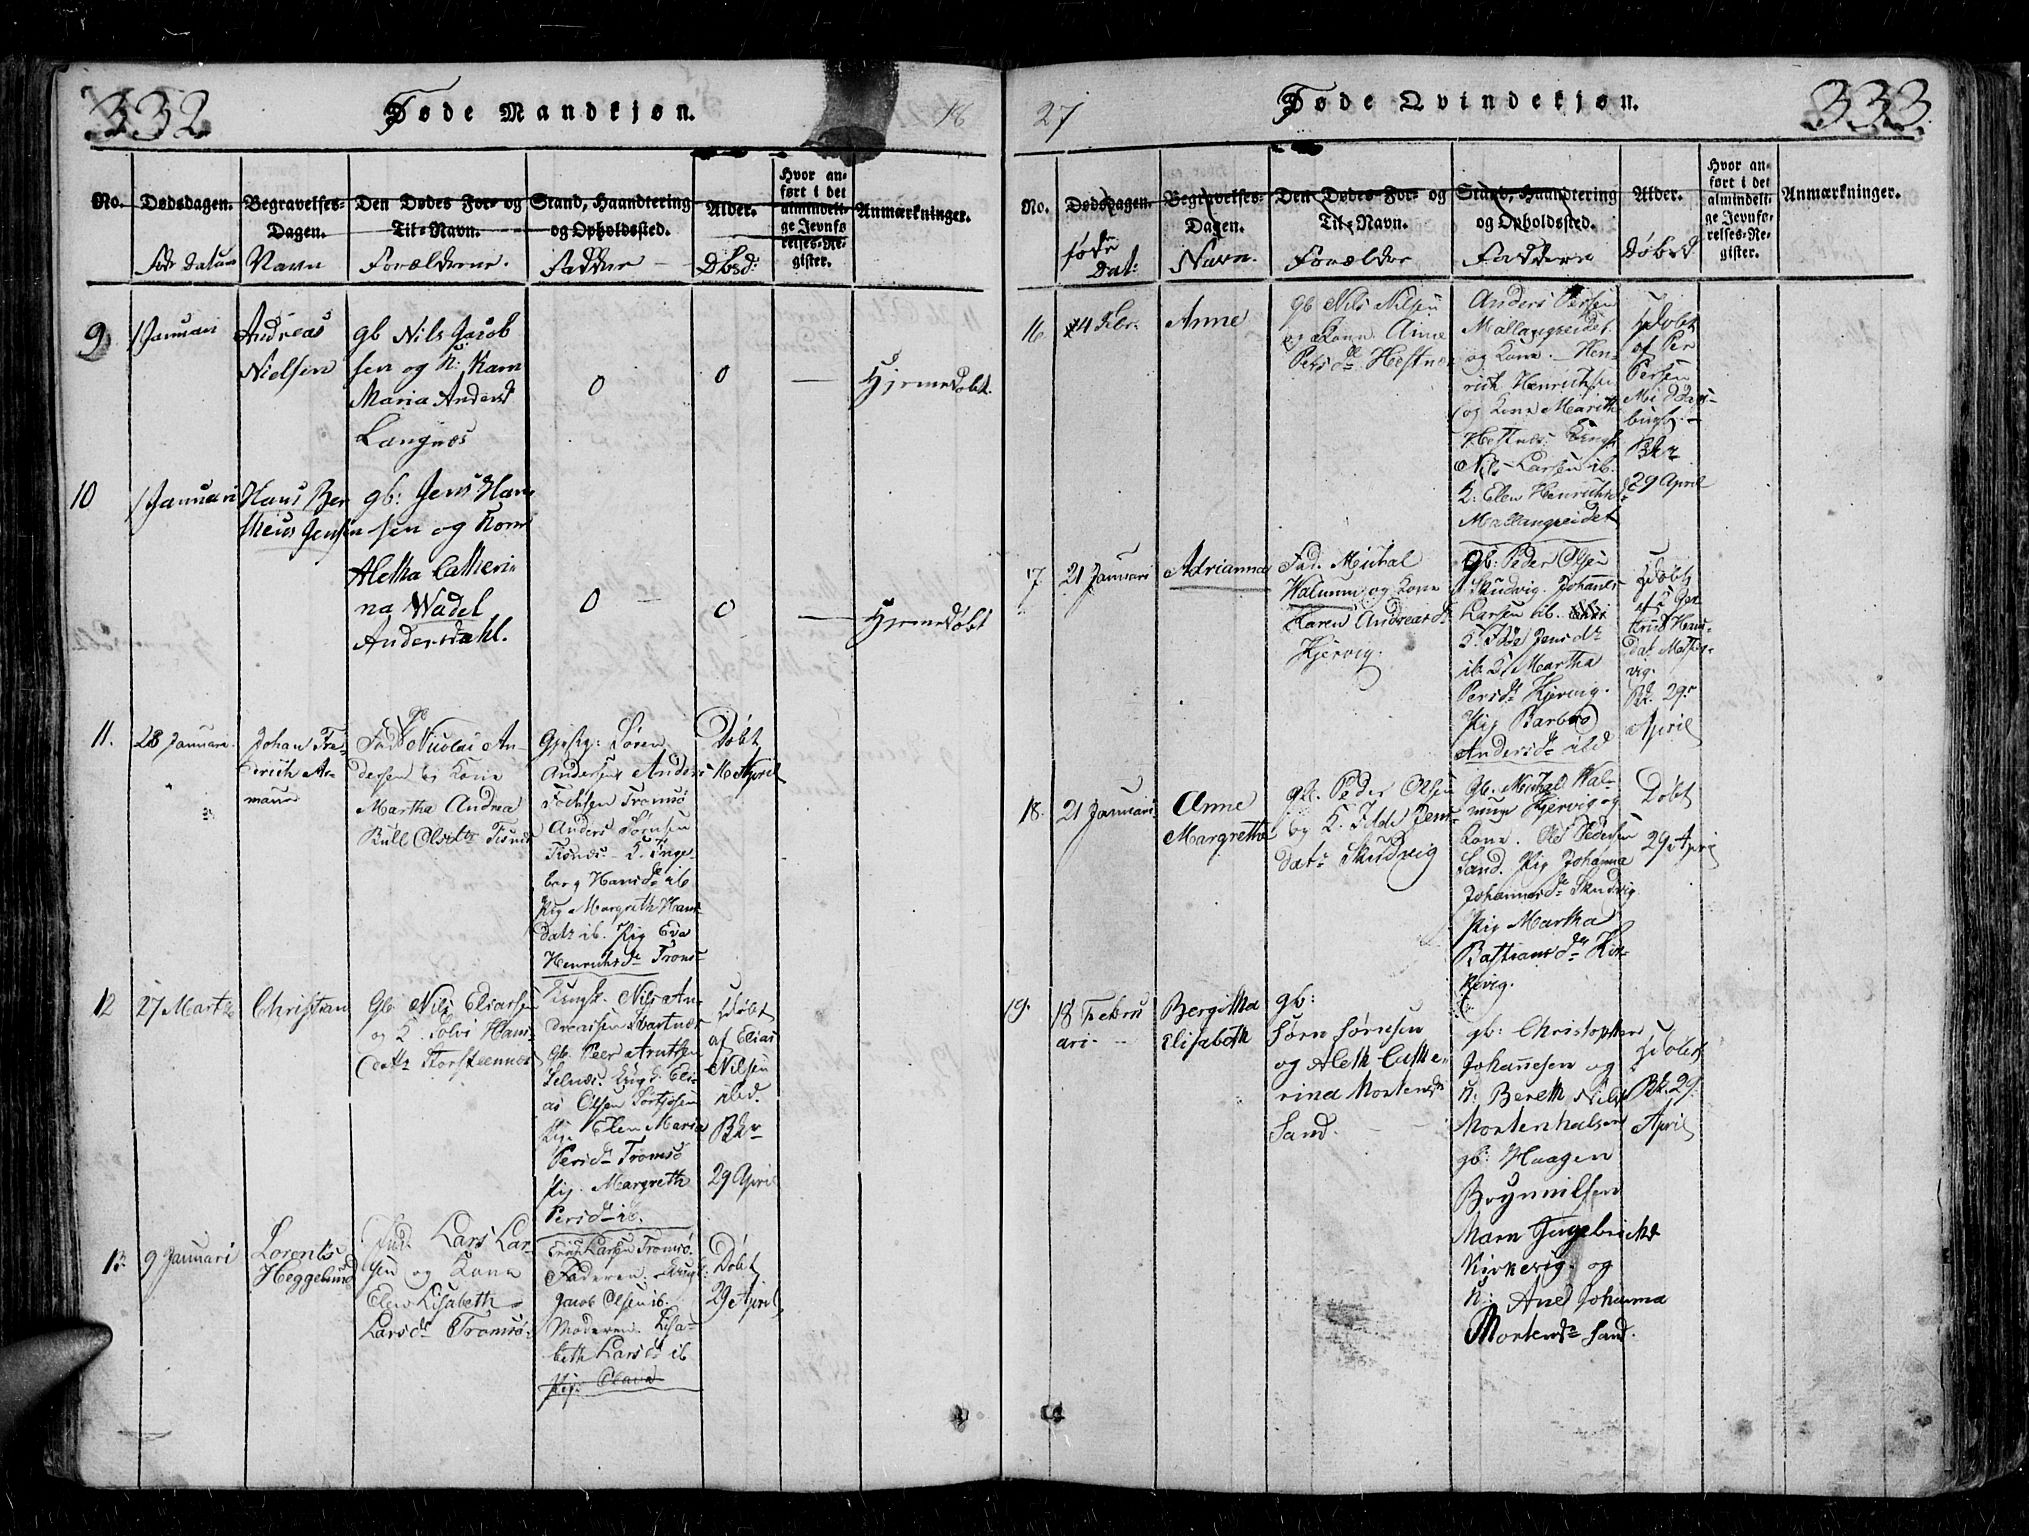 332
Døde Mandkjøn.
18
No.
Dødsdagen.
Begravelses-
Dagen.
Den Dødes For- og
Til-Navn.
Stand, Haandtering
og Opholdssted.
Alder.
Hvor an-
ført i det
almindeli-
ge Jevnfø
relses-Re-
gister.
Anmærkninger.
Føds Datum
Navn
Forælderne.
Faddere
Dbsd:
9
1 Januari
Andreas
Nielsen
gb Nils Jacob
sen og K: Karn
Maria Andersd
Langnæs
0
0
Hjemedøbt.
10
1 Januari
Hans Ber
theus Jensen
gb: Jens Han
sen og Kone
Aletha Catheri-
na Wadel
Andersdahl.
0
0
Hjemedøbt
11.
28 Januari.
Johan Fre-
derich Ar-
mauer
Nicolai An-
dersen og Kone
Martha Andrea
Bull Olsdtr Tisnes
Søren
Andersens Anders
Fochsen Tromsø
Anders Sørnsen
Tisnæs - K. Inge-
borg Hansdr ib
Pig. Margreth Hans-
datr ib. Pig Eva
Henrichsdr Troms-
Døbt
16 April
12
27 Marts
Christian
Gb Nils Eliassen
og K. Sølvi Hans
datr Storsteennes
Ungk. Nils An-
dreassen Svartnæs
Gb. Peer Arntsen
Selnæs. Ungk: Eli-
as Olsen
Pig. Elen Maria
Persdr Tromsø
Pig. Margreth
Persdr ib.
Hdøbt
af Elias
Nilsen
ibd.
Bkr
29 April
13
9 Januari
Lorents
Heggelund
Lars Lar-
sen og Kone
Elen Lisabeth
Larsdr Tromsø
Larsen Tromsø.
Faderen. Ungk:
Jacob Olsen ib.
Moderen. Elisa-
beth Larsdr ib
Pig: Olava
Døbt
29 April
27
Døde Qvindekjøn.
333
No.
Dødsdagen.
Begravelses-
Dagen.
Den Dødes For- og
Til-Navn.
Stand, Haandtering
og Opholdssted.
Alder.
Hvor an-
ført i det
almindeli-
ge Jevnfø-
relses-Re-
gister.
Anmærkninger.
føde
Dat:
Navn.
Forældre
Faddere
Døbsd
16
4 Febr.
Anne
gb Nils Nilsen
og Kone Anne
Persdr Hestnes
Anders Persen
Mallangseidet
og Kone. Hen-
rich Henrichsen
og Kone Marith
Hestnæs. Ungk
Nils Larsen ib.
K: Elen Henrichsd
Mallangseidet
Hdøbt
af Per
Persen
Middags-
bugt.
Bkr
29 April
17.
21 Januari
Adrianna
Fad. Michal
Walmum og Kone
Karen Andreasdr
Kjervig.
gb: Peder Olsen
Skudvig. Johannes
Larsen ib.
K. Idde Jensdr
ib. K Martha
Persdr Kjervig.
Pig Barbro
Andersdr ibd
Hdøbt
Bk. 29.
April
18.
21 Januari
Anne
Margretha
gb. Peder Olsen
og K. Idde Jens-
datr Skudvig
Gb. Michal Wal-
mum Kjervig og
Kone. Ole Pedersen
Sand. Pig Johanna
Johannesdr Skudvig
Pig Martha
Bastiansdr Kir-
kevig.
Døbt
29 April
19.
18 Febru
ari
Bergitha
Elisabeth
gb:
Sørn Sørnsen
og Aleth Cathe-
rina Mortensdr
Sand.
gb: Christopher
Johannesen og
K: Bereth Nilsd
Mortenhalsen
gb: Haagen
Brynnilsen
Marn Ingebrichtsd
Kirkevig. og
K: Ane Johanna
Mortensdr Sand.
Hdøbt
Bk. 29.
April